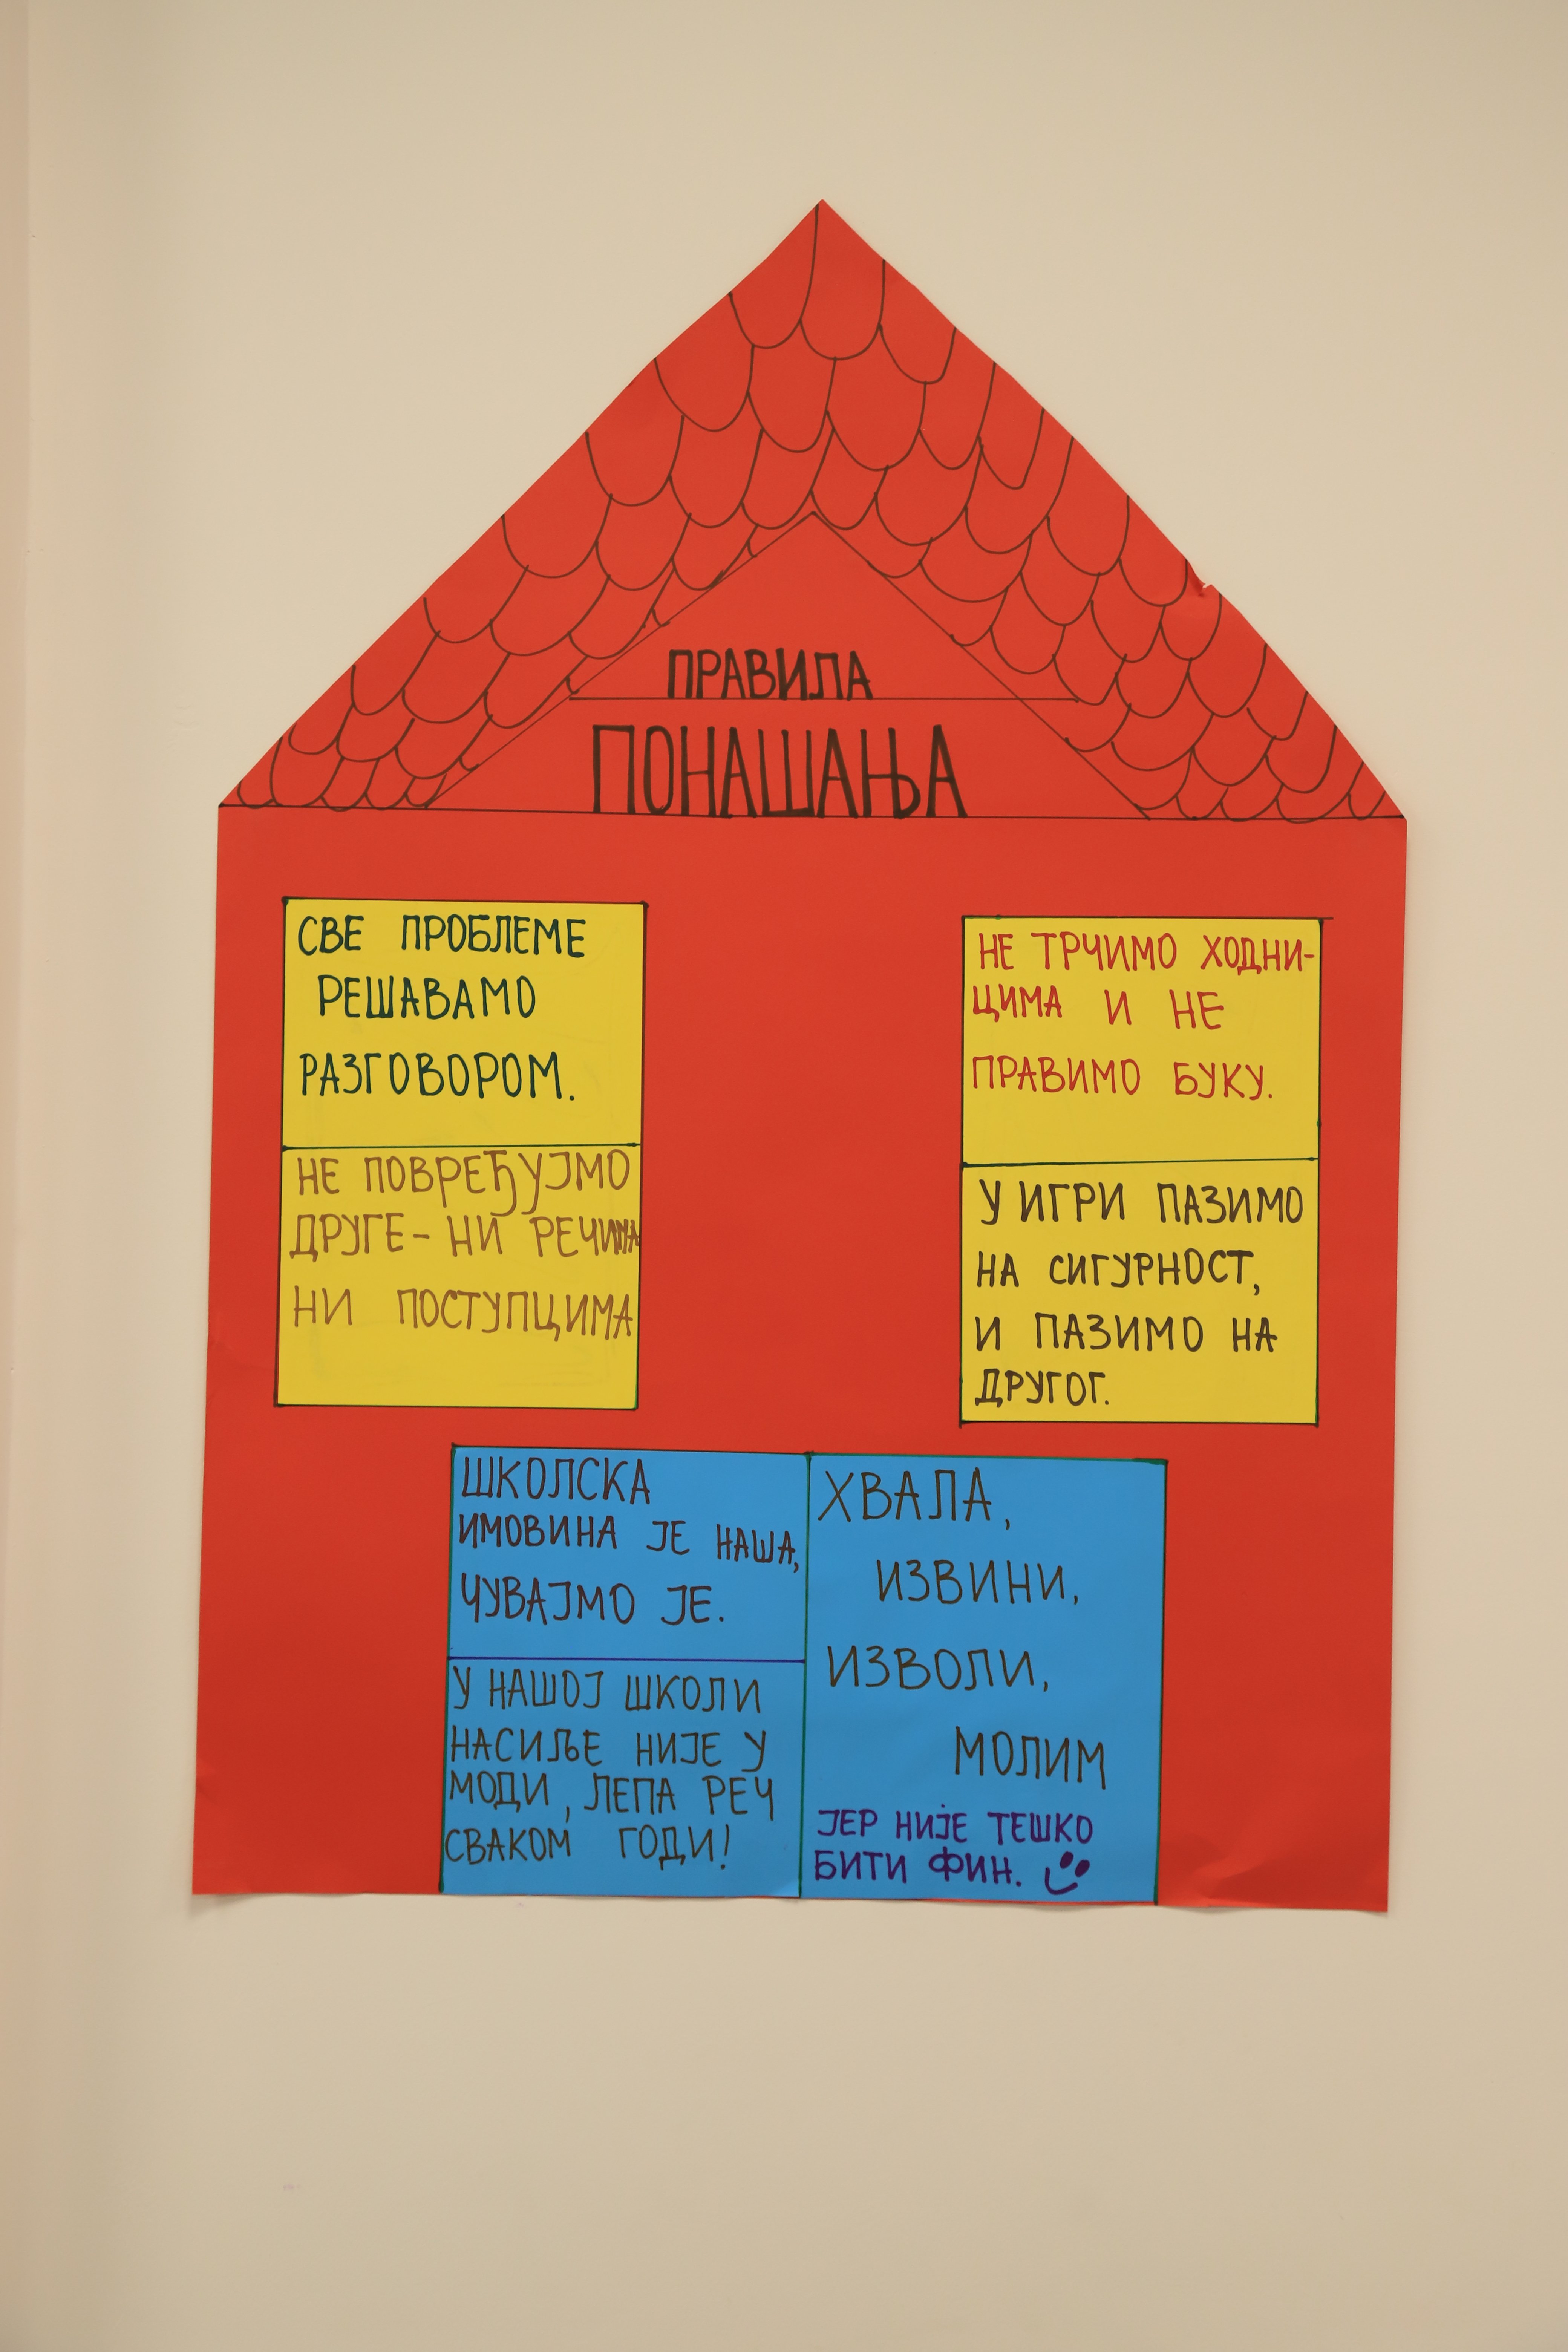 ПРАВИЛА
ПОНАШАЊА
СВЕ ПРОБЛЕМЕ
РЕШАВАМО
РАЗГОВОРОМ.
НЕ ПОВРЕЂУЈМО
ДРУГЕ- НИ РЕЧИМА
НИ ПОСТУПЦИМА
НЕ ТРЧИМО ХОДНИ-
ЦИМА И НЕ
ПРАВИМО БУКУ.
У ИГРИ ПАЗИМО
НА СИГУРНОСТ,
И ПАЗИМО НА
ДРУГОГ.
ШКОЛСКА
ИМОВИНА ЈЕ НАША,
ЧУВАЈМО ЈЕ.
У НАШОЈ ШКОЛИ
НАСИЉЕ НИЈЕ У
МОДИ, ЛЕПА РЕЧ
СВАКОМ ГОДИ!
ХВАЛА,
ИЗВИНИ,
ИЗВОЛИ,
МОЛИМ
ЈЕР НИЈЕ ТЕШКО
БИТИ ФИН.